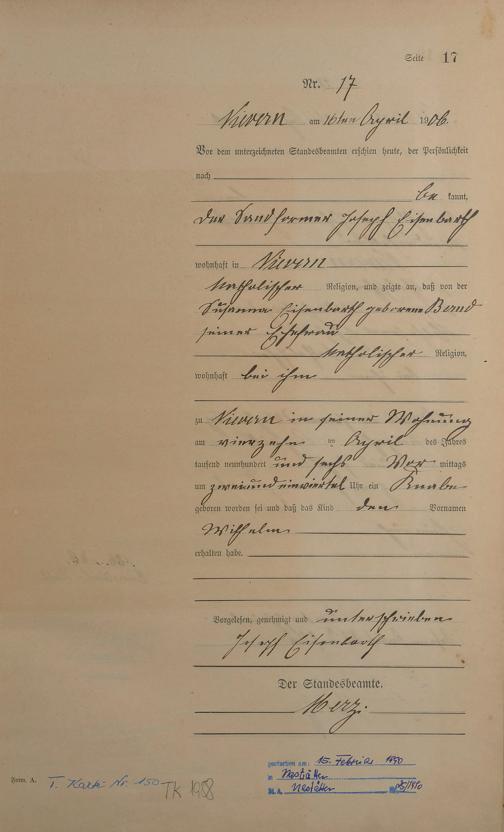 Seite 17
Nr. 17
Nievern am 16ten April 1906.
Vor dem unterzeichneten Standesbeamten erschien heute, der Persönlichkeit
nach
be kannt,
der Sandformer Joseph Eisenbarth
wohnhaft in Nievern
katholischer Religion, und zeigte an, daß von der
Susanna Eisenbarth geborene Bernd
seiner Ehefrau
katholischer Religion,
wohnhaft bei ihm
zu Nievern in seiner Wohnung
am vierzehn ten April des Jahres
tausend neunhundert und sechs Vor mittags
um zweiundeinviertel Uhr ein Knabe
geboren worden sei und daß das Kind den Vornamen
Wilhelm
erhalten habe.
Vorgelesen, genehmigt und unterschrieben
Joseph Eisenbarth
Der Standesbeamte.
Merz.
gestorben am: 15. Februar
in Nastätten
St.A. Nastätten
Form. A.
T. Karte Nr. 150 TK 1958